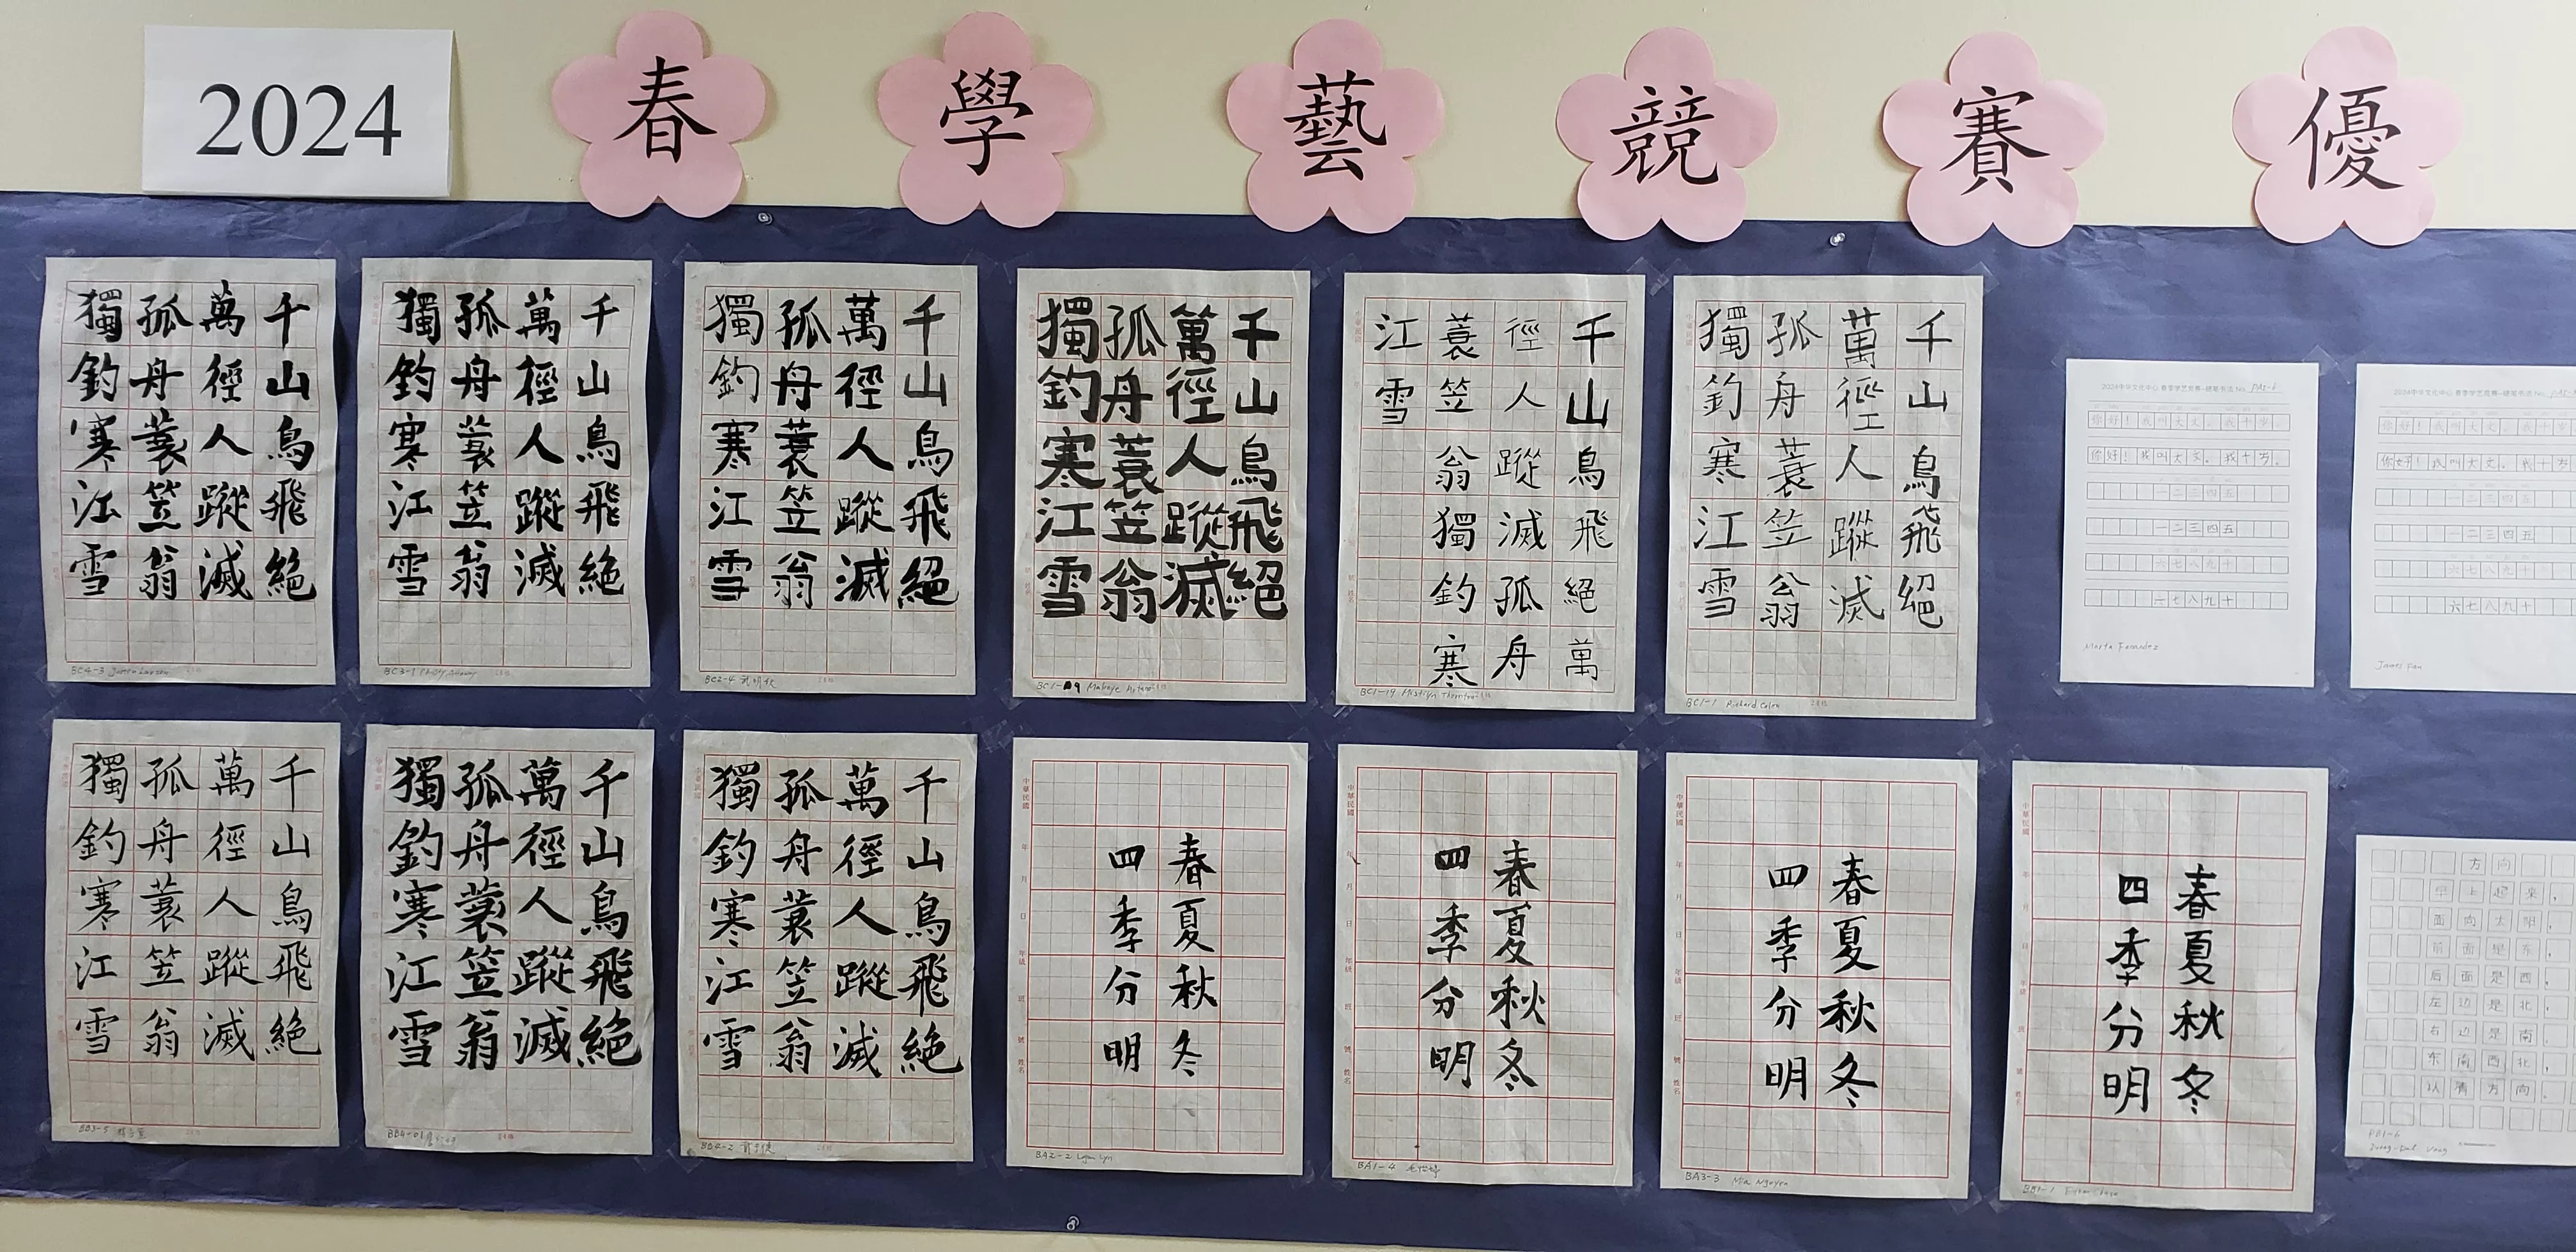 2024
春學藝競賽優
千山鳥飛絕
萬徑人蹤滅
孤舟蓑笠翁
獨釣寒江雪
BC4-3
千山鳥飛絕
萬徑人蹤滅
孤舟蓑笠翁
獨釣寒江雪
BC3-1
千山鳥飛絕
萬徑人蹤滅
孤舟蓑笠翁
獨釣寒江雪
BC2-4
千山鳥飛絕
萬徑人蹤滅
孤舟蓑笠翁
獨釣寒江雪
BC1-9
千山鳥飛絕萬
徑人蹤滅孤舟
蓑笠翁獨釣寒
江雪
BC1-19
千山鳥飛絕
萬徑人蹤滅
孤舟蓑笠翁
獨釣寒江雪
BC1-1 Richard Colen
2024中华文化中心 春季学艺竞赛-硬笔书法 No. PA2-6
你好！我叫大文。我十岁。
你好！我叫大文。我十岁。
一二三四五
一二三四五
六七八九十
六七八九十
Marta Fernandez
2024中华文化中心 春季学艺竞赛-硬笔书法 No.
你好！我叫大文。我十岁
你好！我叫大文。我十岁
一二三四五
一二三四五
六七八九十
六七八九十
James Fan
千山鳥飛絕
萬徑人蹤滅
孤舟蓑笠翁
獨釣寒江雪
BB3-5
千山鳥飛絕
萬徑人蹤滅
孤舟蓑笠翁
獨釣寒江雪
BB4-01
千山鳥飛絕
萬徑人蹤滅
孤舟蓑笠翁
獨釣寒江雪
BB4-2
春夏秋冬
四季分明
中華民國 年 月 日 年級 班 號 姓名
BA2-2 Logan Lyn
春夏秋冬
四季分明
中華民國 年 月 日 年級 班 號 姓名
BA1-4
春夏秋冬
四季分明
中華民國 年 月 日 年級 班 號 姓名
BA3-3 Mia Nguyen
春夏秋冬
四季分明
中華民國 年 月 日 年級 班 號 姓名
方向
早上起来，
面向太阳，
前面是东，
后面是西，
左边是北，
右边是南。
东南西北，
认清方向。
PB1-6